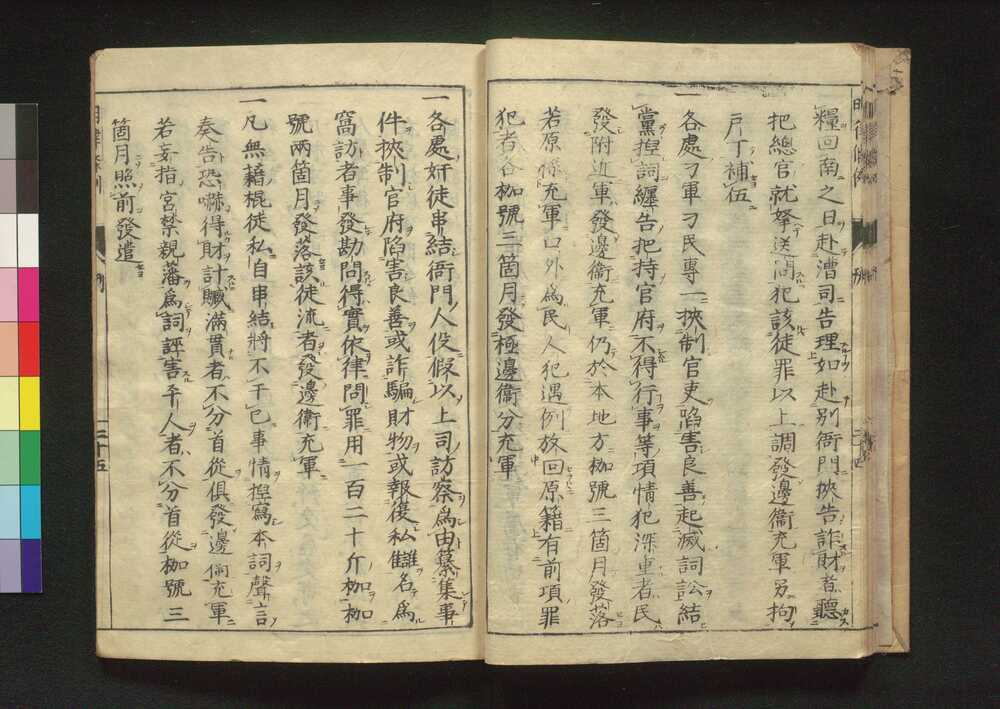 糧回南之日赴漕司告理如赴別衙門挾告詐財者聽
把總官就拏送問犯該徒罪以上調發邊衞充軍另拘
戶丁補伍
一各處刁軍刁民專一挾制官吏陷害良善起滅詞訟結
黨捏詞纏告把持官府不得行事等項情犯深重者民
發附近軍發邊衞充軍仍於本地方枷號三箇月發落
若原係充軍口外爲民人犯遇例放回原籍有前項罪
犯者各枷號三箇月發極邊衞分充軍
一各處奸徒串結衙門人役假以上司訪察爲由纂集事
件挾制官府陷害良善或詐騙財物或報復私讎名爲
窩訪者事發勘問得實依律問罪用一百二十斤枷枷
號兩箇月發落該徒流者發邊衞充軍
一凡無藉棍徒私自串結將不干己事情捏寫本詞聲言
奏告恐嚇得財計贓滿貫者不分首從俱發邊衞充軍
若妄指宮禁親藩爲詞誣害平人者不分首從枷號三
箇月照前發遣
明律條例
三十五